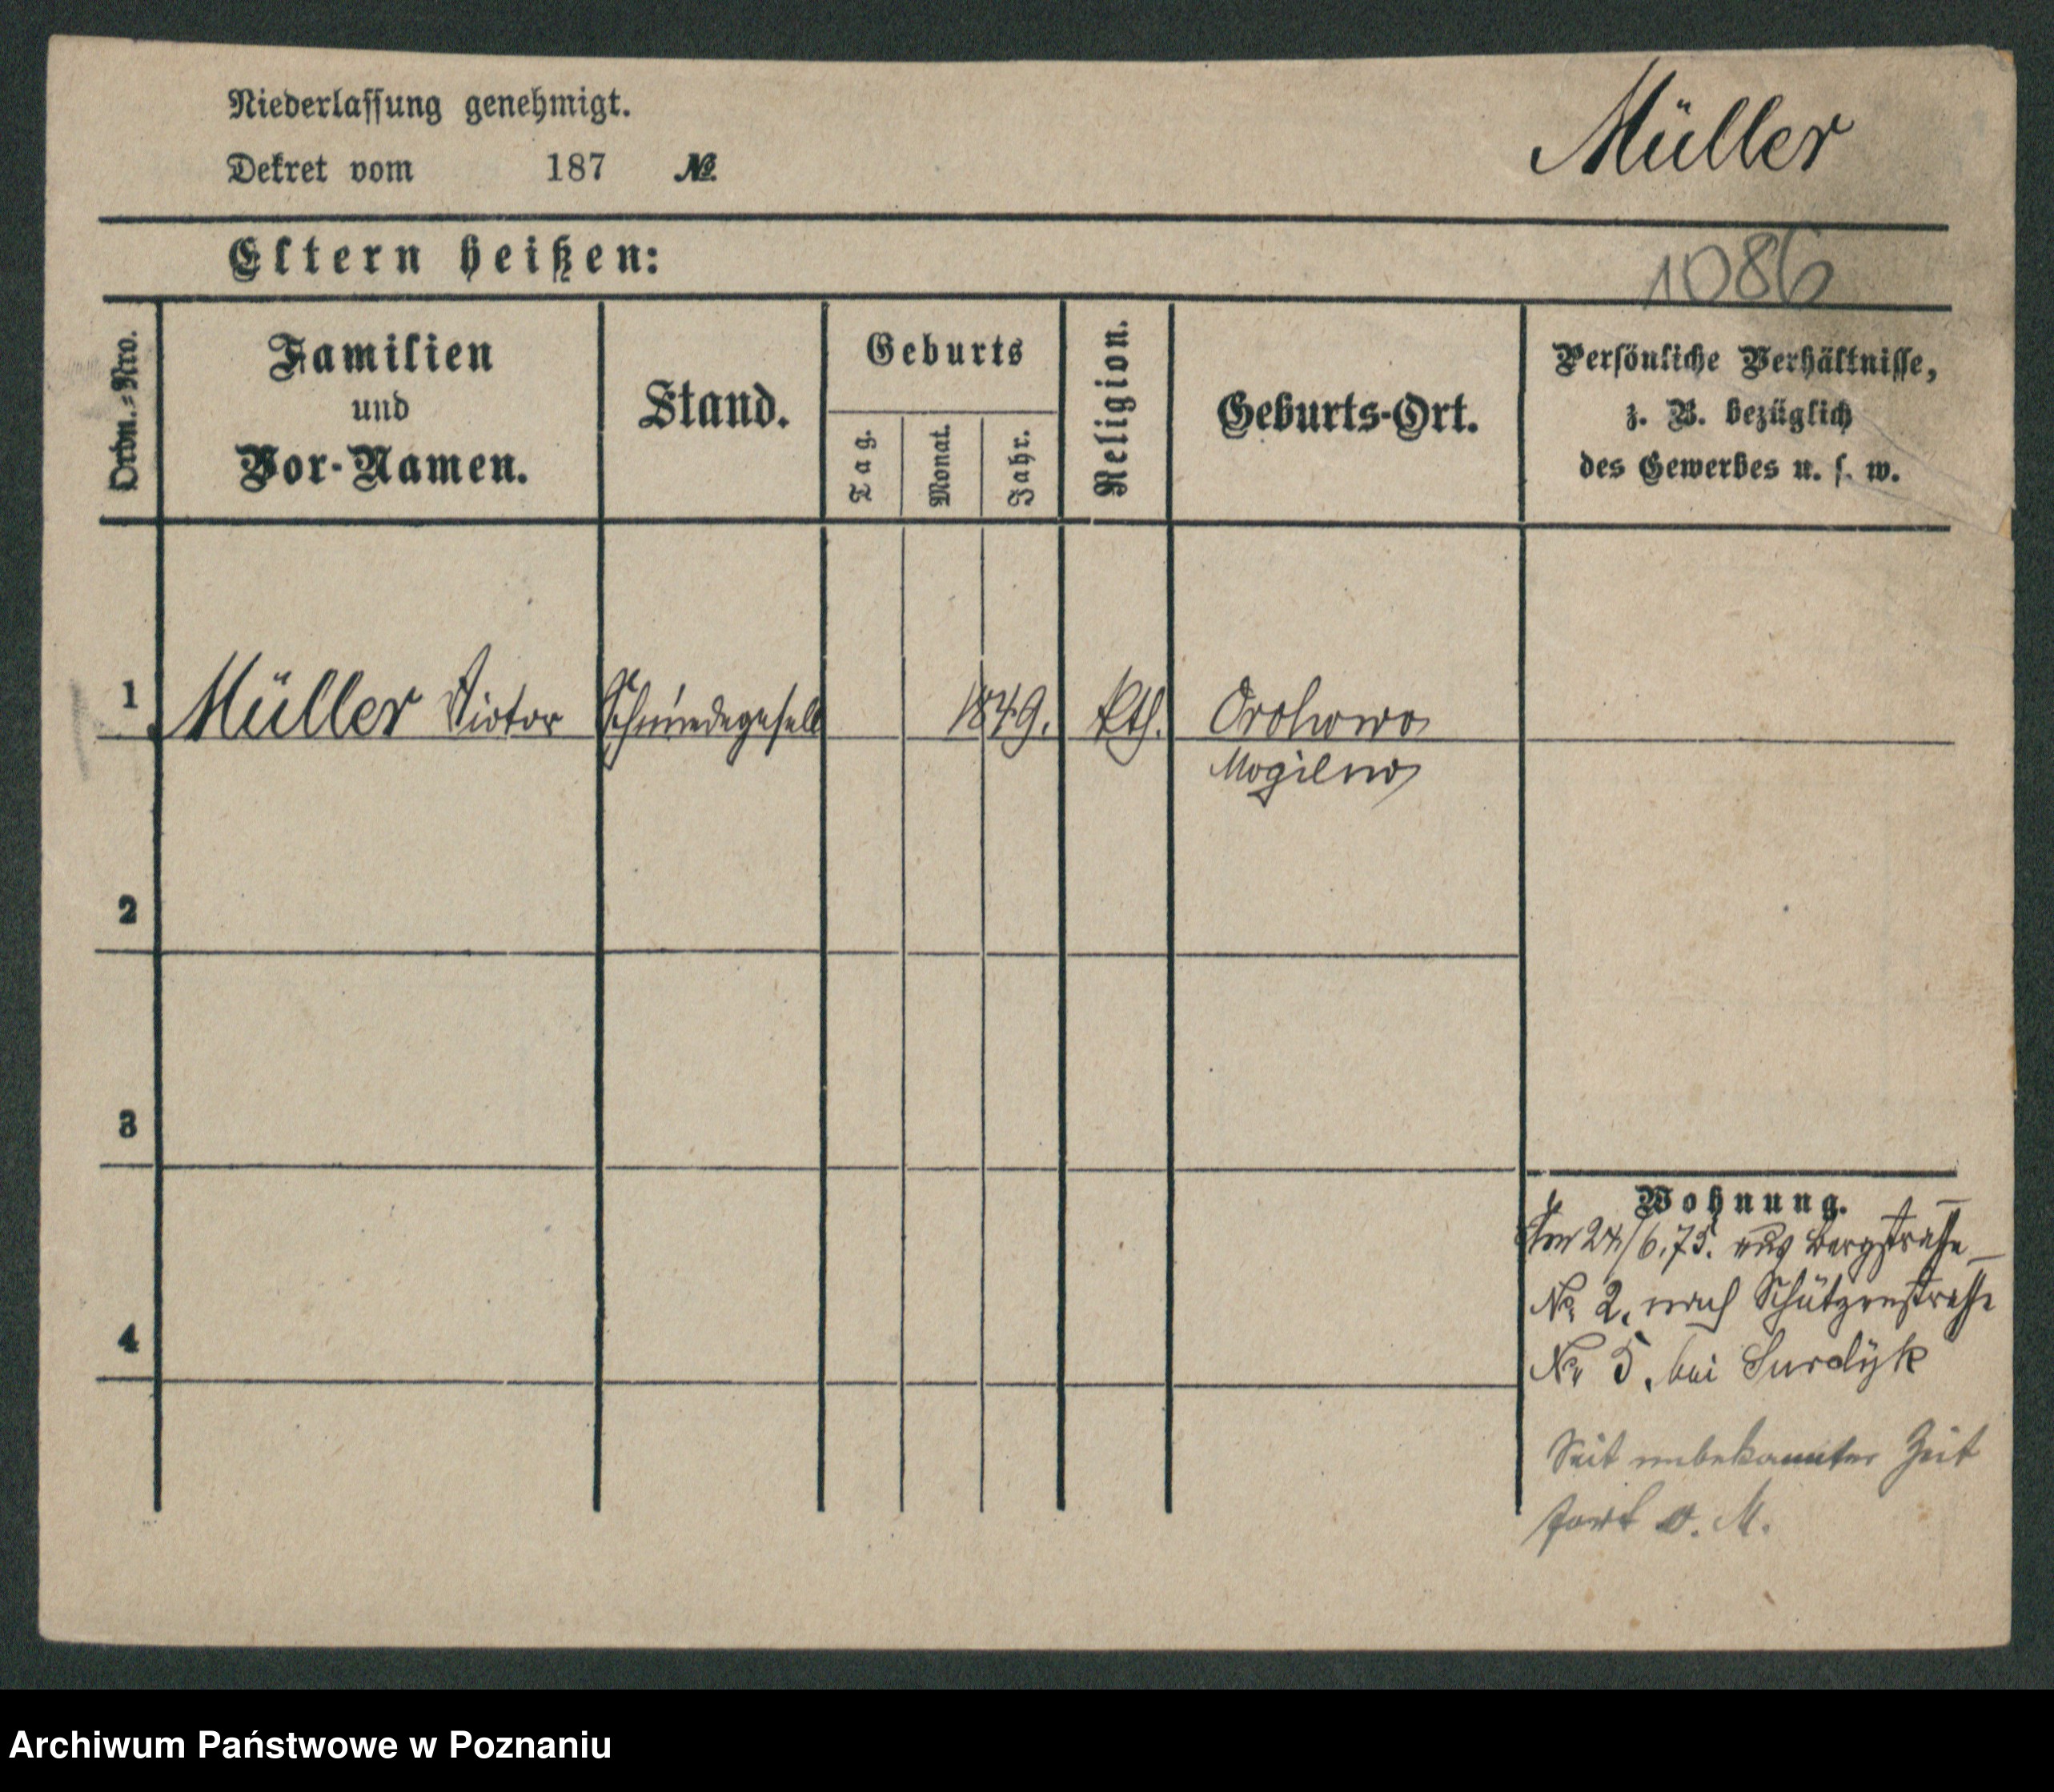 Niederlassung genehmigt.
Dekret vom 187 №
Müller
Eltern heißen:
1086
Ordn.-Nro.
Familien
und
Vor-Namen.
Stand.
Geburts
Tag.
Monat.
Jahr.
Religion.
Geburts-Ort.
Persönliche Verhältnisse,
z. B. bezüglich
des Gewerbes u. s. w.
1 Müller Victor Schmiedegesell 1849. kth. Orchowo
Mogilno
2
3
4
Wohnung.
Am 24/6.75. aus Bergstrasse
No 2. nach Schützenstrasse
No 5. bei Surdyk
Seit unbekannter Zeit
fort v. M.
Archiwum Państwowe w Poznaniu